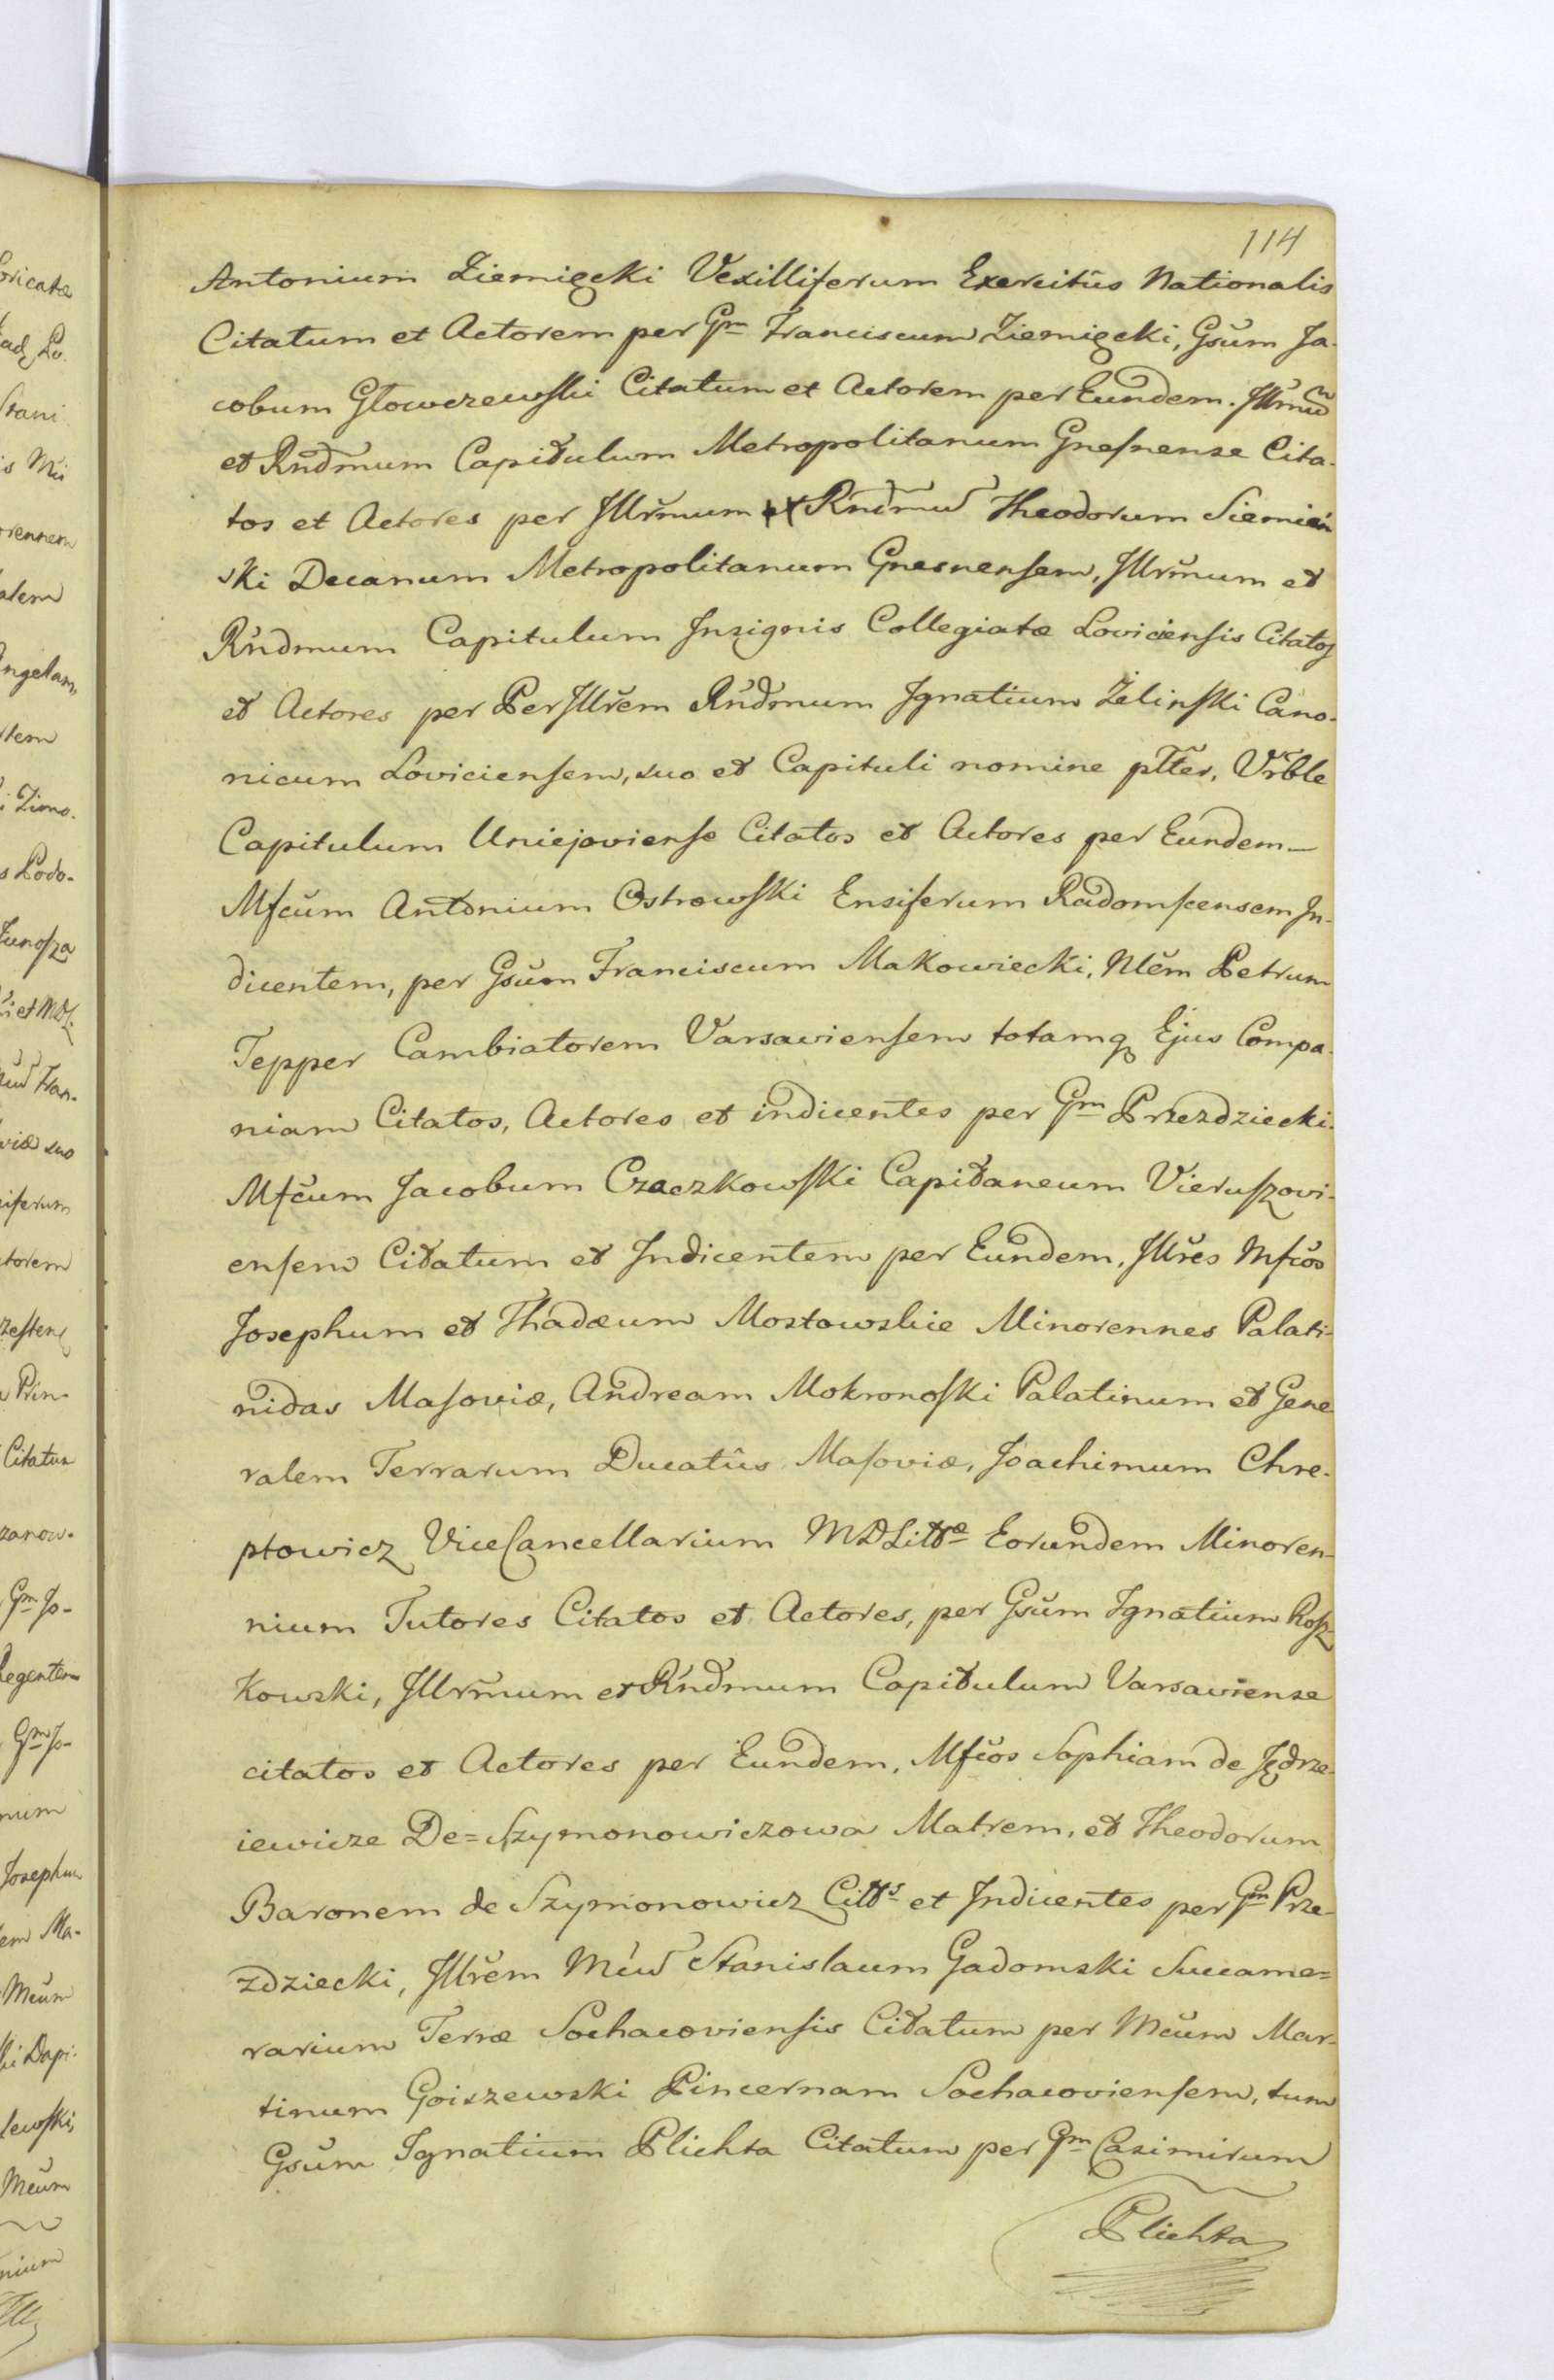 114
Antonium Ziemięcki Vexilliferum Exercitûs Nationalis
Citatum et Actorem per Gm Franciscum Ziemięcki, Gsũm Ja-
cobum Głowczewski Citatum et Actorem per Eundem. Jllrm̃um
et Rñdmum Capitulum Metropolitanum Gnesnense Cita-
tos et Actores per Jllrm̃um et Rñdmũ Theodorum Siemień
ski Decanum Metropolitanum Gnesnensem, Jllrm̃um et
Rñdmum Capitulum Insignis Collegiatæ Loviciensis Citatos
et Actores per Perjllr̃em Rñdmum Jgnatium Zelinski Cano-
nicum Loviciensem, suo et Capituli nomine ptter, Vr̃ble
Capitulum Uniejoviense Citatos et Actores per Eundem—
Mfcũm Antonium Ostrowski Ensiferum Radomscensem In-
dicentem, per Gsũm Franciscum Makowiecki, Nlẽm Petrum
Tepper Cambiatorem Varsaviensem totamq Ejus Compa-
niam Citatos, Actores et indicentes per Gm Przezdziecki.
Mfcũm Jacobum Czaczkowski Capitaneum Vieruszovi-
ensem Citatum et Indicentem per Eundem, Jllr̃es Mfcõs
Josephum et Thadæum Mostowskie Minorennes Palati-
nidas Masoviæ, Andream Mokronoski Palatinum et Gene
ralem Terrarum Ducatûs Masoviæ, Joachimum Chre-
ptowicz ViceCancellarium MDLittæ Eorundem Minoren-
nium Tutores Citatos et Actores, per Gsũm Ignatium Rosz
kowski, Jllrm̃um et Rñdmum Capitulum Varsaviense
citatos et Actores per Eundem, Mfcõs Sophiam de Jędrze-
iewicze De=Szymonowiczowa Matrem, et Theodorum
Baronem de Szymonowicz Citts et Indicentes per Gm Prze-
zdziecki, Jllr̃em Mcũ Stanislaum Gadomski Succame=
rarium Terræ Sochacoviensis Citatum per Mcũm Mar-
tinum Goiszewski Pincernam Sochacoviensem, tum
Gsũm Ignatium Plichta Citatum per Gm Casimirum
Plichta